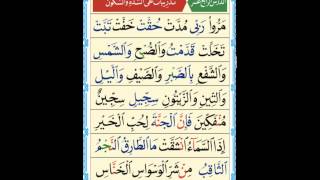 الدَّرْسُ الرَّابِعُ عَشَر تَدْرِيبَات عَلَى الشَّدَّةِ وَالسُّكُون
مَرُّوا رَبِّى مُدَّتْ حُقَّتْ خَفَّتْ تَبَّتْ
تَخَلَّتْ قَدَّمَتْ وَالصُّبْحِ وَالشَّمْسِ
وَالشَّفْعِ بِالصَّبْرِ وَالصَّيْفِ وَالَّيْلِ
وَالتِّينِ وَالزَّيْتُونِ سِجِّيلٍ سِجِّينٌ
مُنفَكِّينَ فَإِنَّ الْجَنَّةَ لِحُبِّ الْخَيْرِ
إِذَا السَّمَاءُ انشَقَّتْ مَا الطَّارِقُ النَّجْمُ
الثَّاقِبُ مِن شَرِّ الْوَسْوَاسِ الْخَنَّاسِ